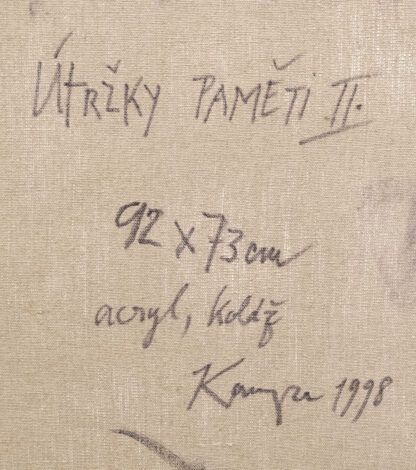 Útržky PAMĚTi II.
92 x 73 cm
acryl, koláž
1998